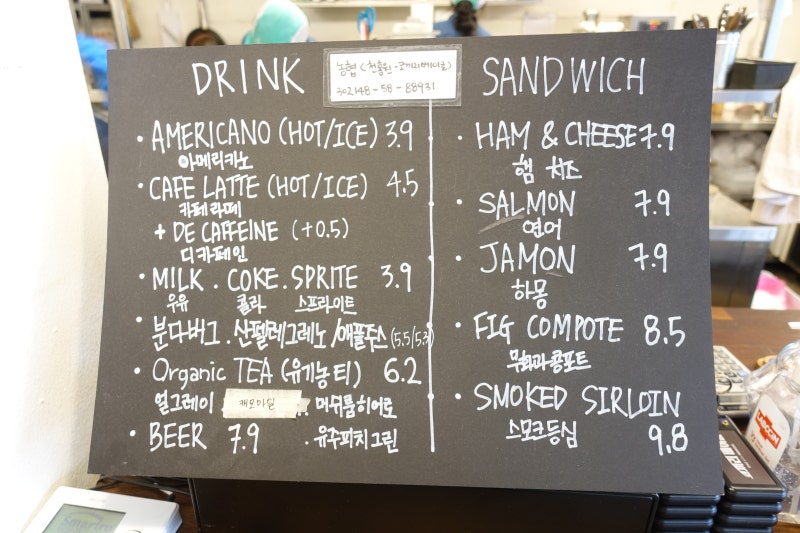 DRINK
농협 <천홍원-코끼리베이글>
302148-58-88931
· AMERICANO (HOT/ICE) 3.9
아메리카노
· CAFE LATTE (HOT/ICE) 4.5
카페라떼
+ DE CAFFEINE (+0.5)
디카페인
· MILK . COKE . SPRITE 3.9
우유 콜라 스프라이트
분다버그 . 산펠레그레노 /애플주스 (5.5/5.3)
· Organic TEA (유기농티) 6.2
얼그레이 캐모마일 . 머쉬룸히어로
. 유주피치그린
· BEER 7.9
SANDWICH
· HAM & CHEESE 7.9
햄 치즈
· SALMON 7.9
연어
· JAMON 7.9
하몽
· FIG COMPOTE 8.5
무화과콩포트
· SMOKED SIRLOIN
스모크등심 9.8